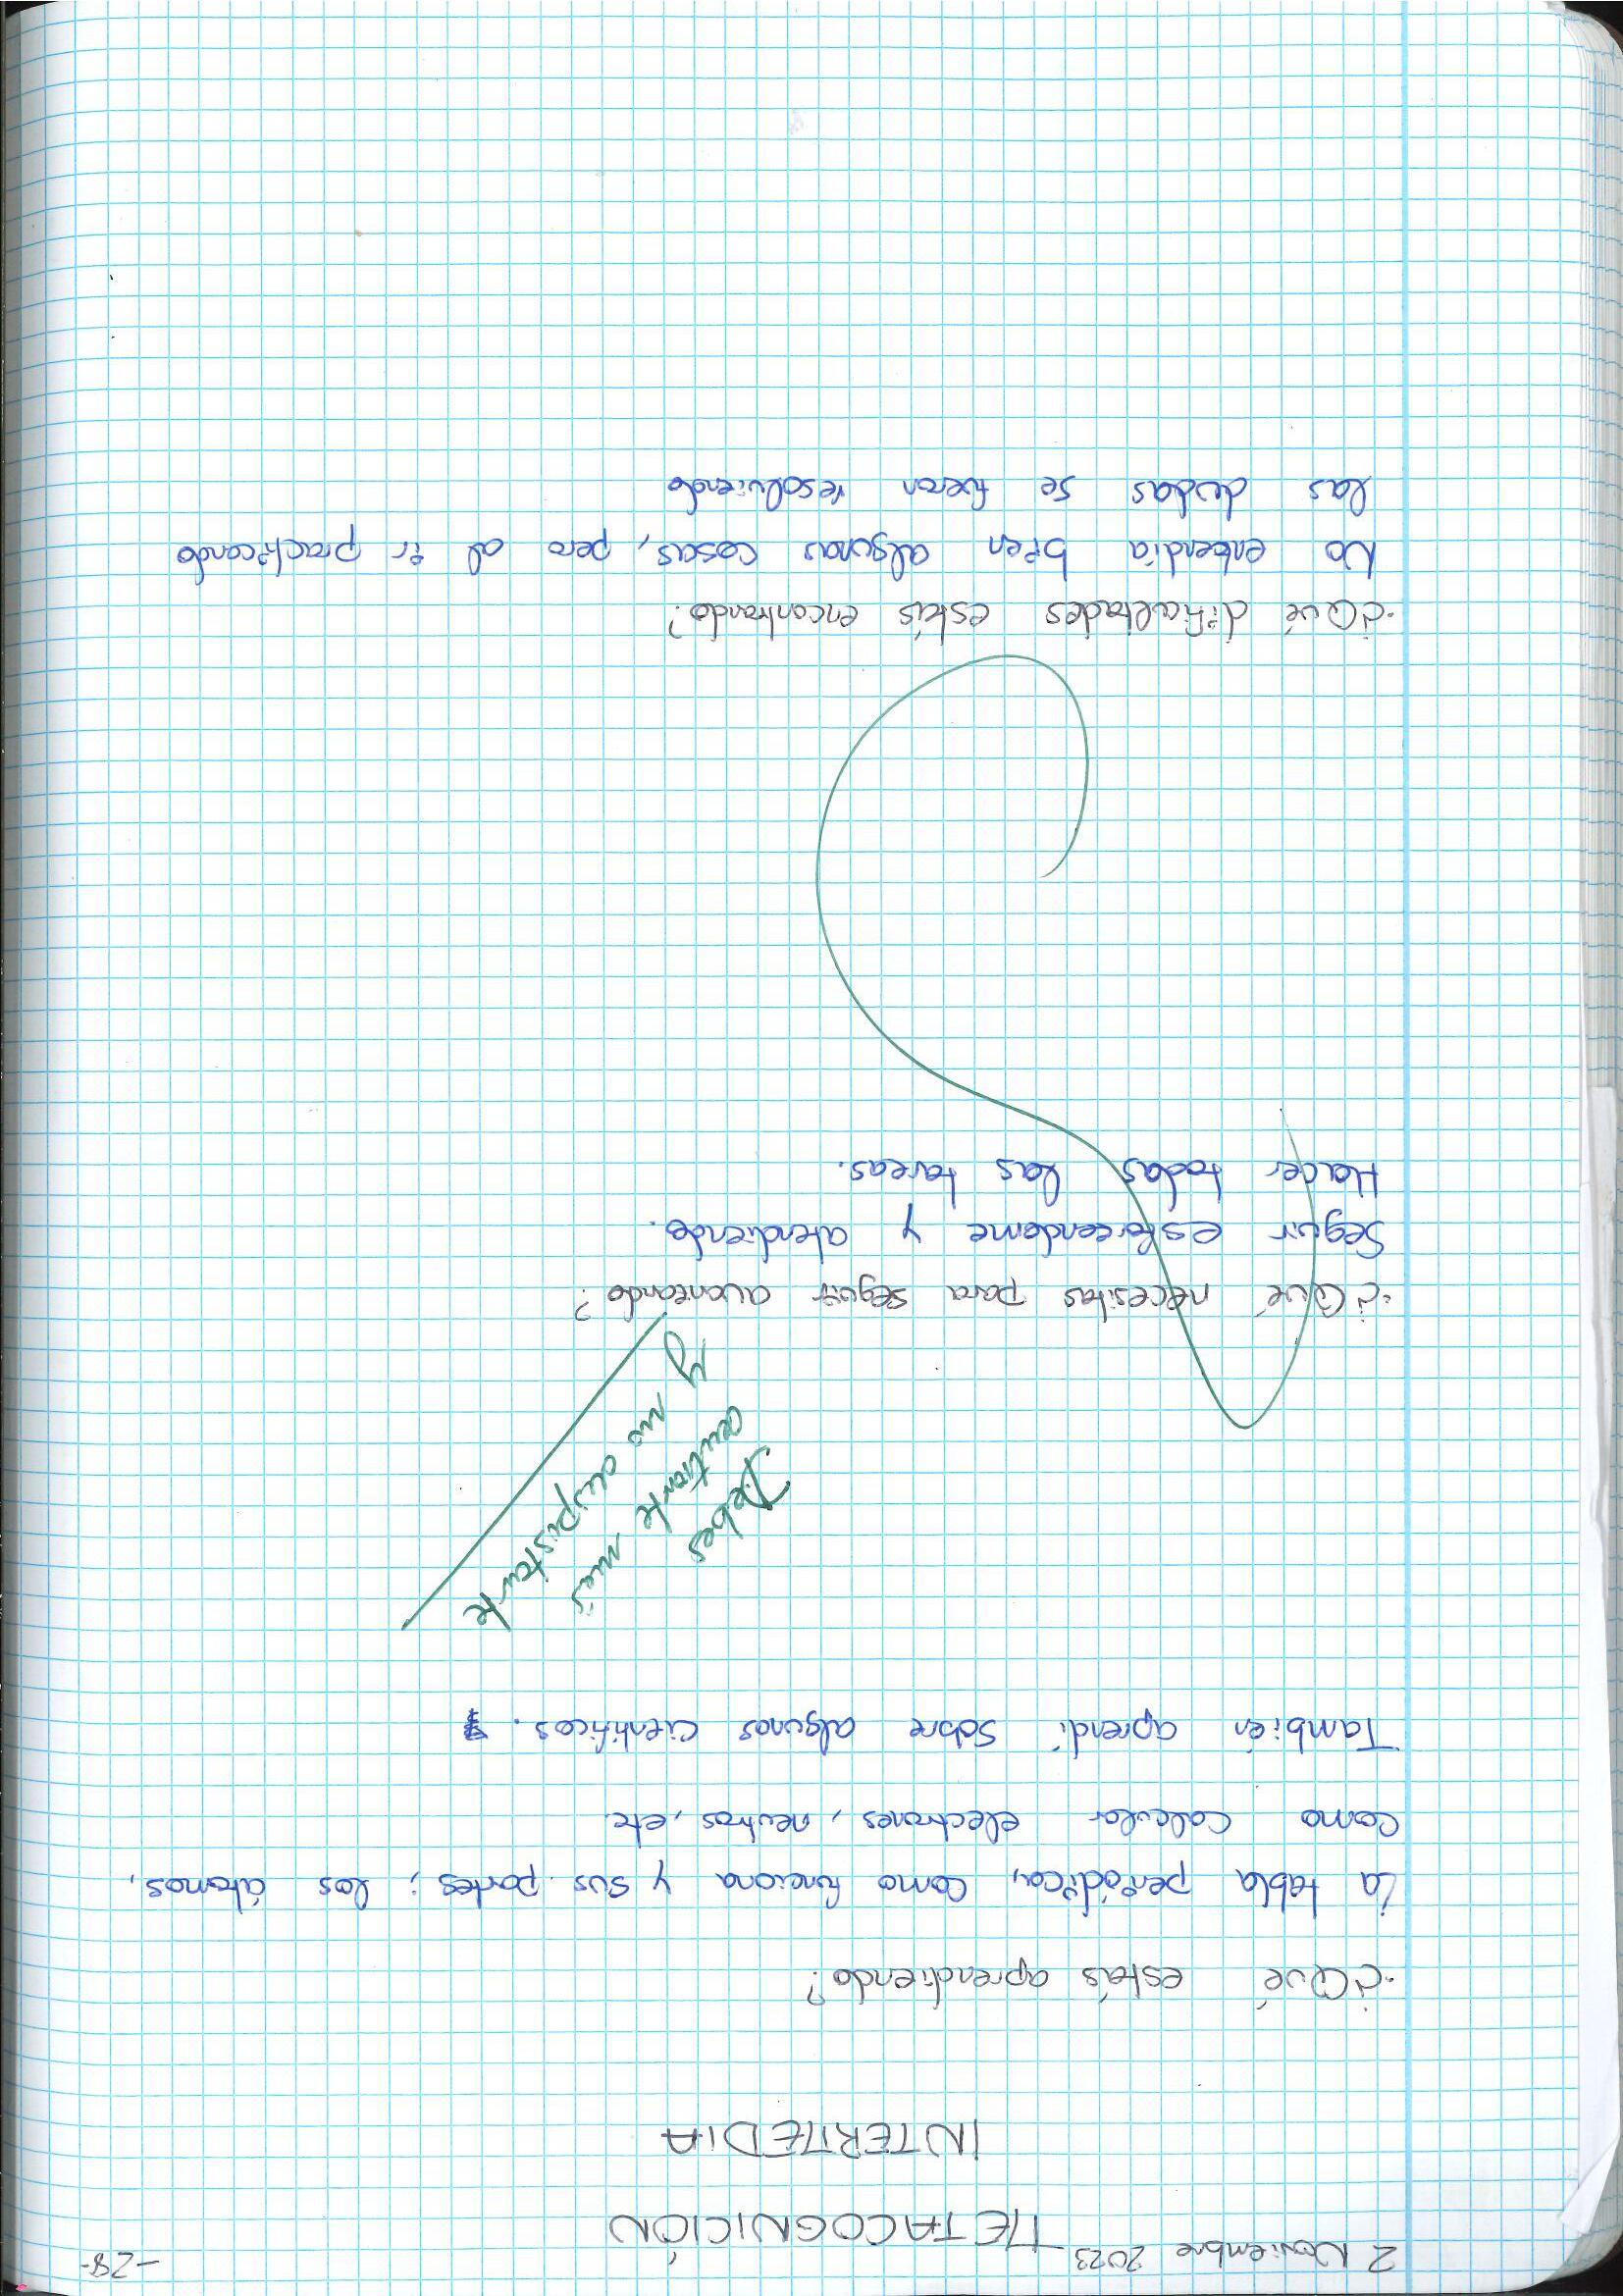 2 Noviembre 2023
-28-
METACOGNICIÓN
INTERMEDIA
·¿Qué estás aprendiendo?
La tabla periódica, como funciona y sus partes; los átomos,
como calcular electrones, neutros, etc.
También aprendí sobre algunos científicos.
Debes
centrarte más
y no despistarte
·¿Qué necesitas para seguir avanzando?
Seguir esforcendome y atendiendo.
Hacer todas las tareas.
·¿Qué dificultades estás encontrando?
No entendía bien algunas cosas, pero al ir practicando
las dudas se fueron resolviendo